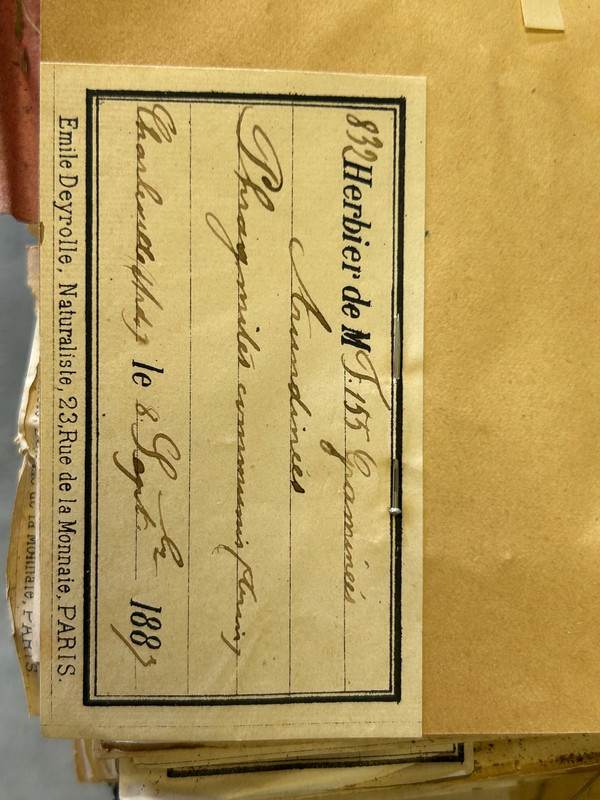 832 Herbier de M T. 155 Graminées
Arundinées
Phragmites communis
le 8 Sept. 1883
Emile Deyrolle, Naturaliste, 23, Rue de la Monnaie, PARIS.
de la Monnaie, PARIS.